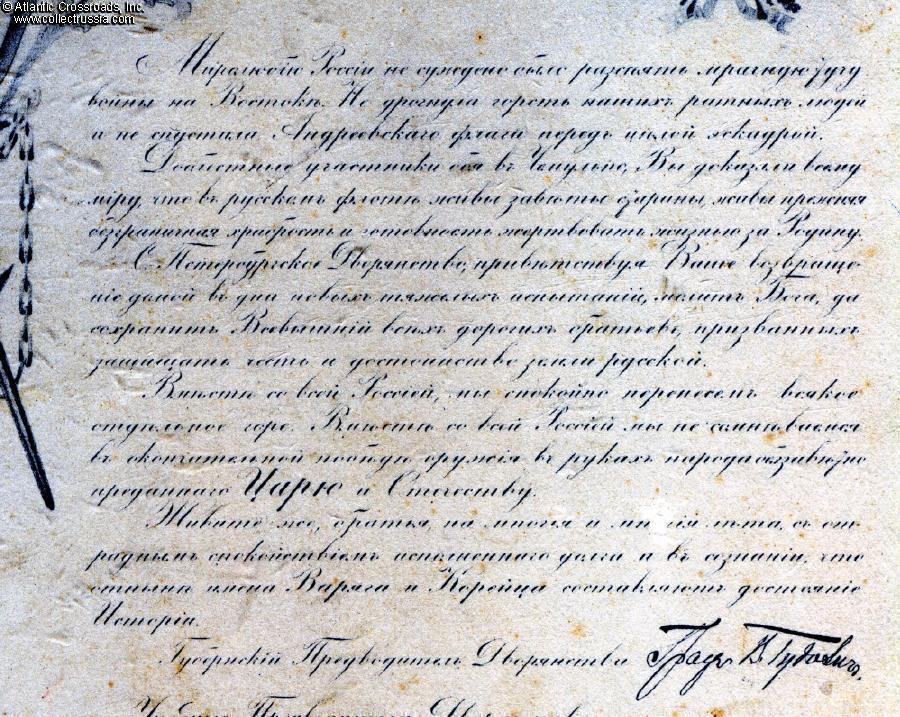 © Atlantic Crossroads, Inc.
www.collectrussia.com
Миролюбію Россіи не суждено было разсѣять мрачную тучу
войны на Востокѣ. Не дрогнула горсть нашихъ ратныхъ людей
и не спустила Андреевскаго флага передъ цѣлой эскадрой.
Доблестные участники боя въ Чемульпо, Вы доказали всему
міру, что въ русскомъ флотѣ живы завѣты старины, жива прежняя
безграничная храбрость и готовность жертвовать жизнью за Родину.
С. Петербургское Дворянство, привѣтствуя Ваше возвраще-
ніе домой въ дни новыхъ тяжелыхъ испытаній, молитъ Бога, да
сохранитъ Всевышній всѣхъ дорогихъ братьевъ, призванныхъ
защищать честь и достоинство земли русской.
Вмѣстѣ со всей Россіей, мы спокойно перенесемъ всякое
отдѣльное горе. Вмѣстѣ со всей Россіей мы не сомнѣваемся
въ окончательной побѣдѣ оружія въ рукахъ народа беззавѣтно
преданнаго Царю и Отечеству.
Живите же, братья, на многія и многія лѣта, съ от-
раднымъ спокойствіемъ исполненнаго долга и въ сознаніи, что
отнынѣ имена Варяга и Корейца составляютъ достояніе
Исторіи.
Губернскій Предводитель Дворянства Графъ В Гудовичъ.